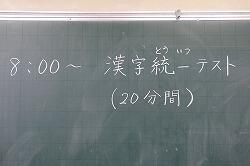 8:00～ 漢字統一テスト
とういつ
(20分間)